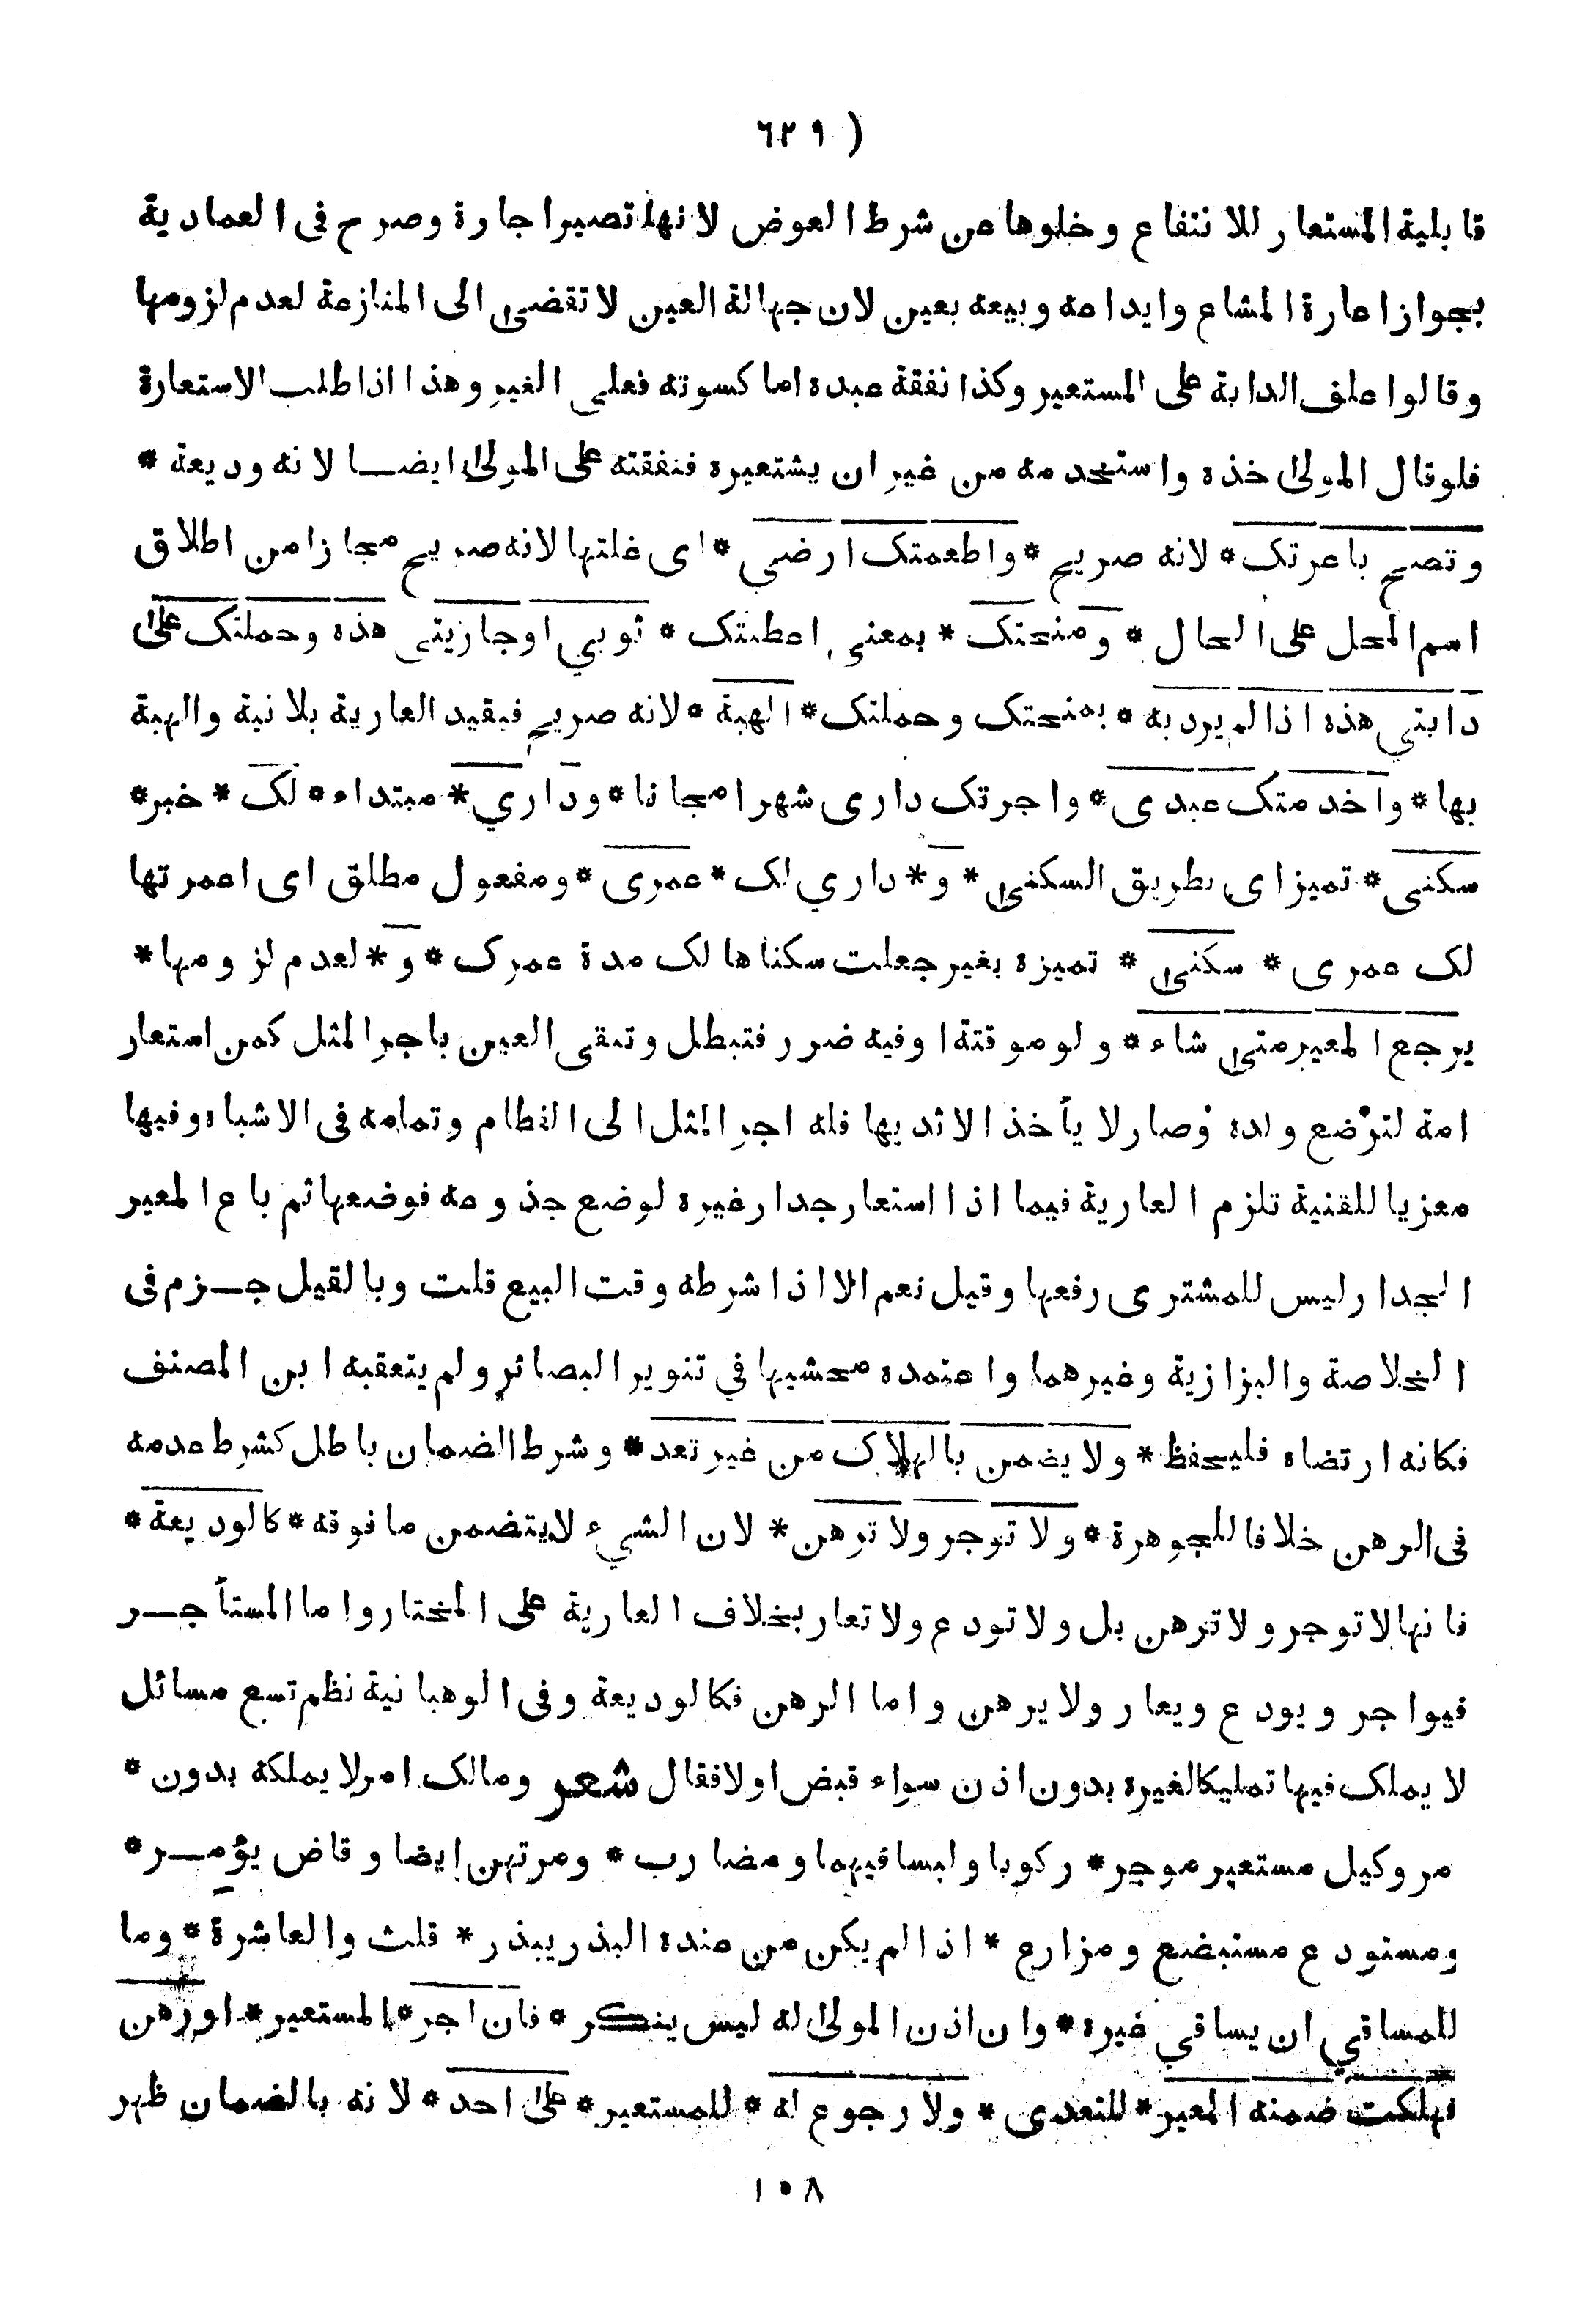 ( ٦٢٩
قابلية المستعار للانتفاع وخلوها عن شرط العوض لانها تصير اجارة وصرح فى العمادية
بجواز اعارة المشاع وايداعه وبيعه بعين لان جهالة العين لا تقضى الى المنازعة لعدم لزومها
وقالوا علف الدابة على المستعير وكذا نفقة عبده اما كسوته فعلى الغير وهذا اذا طلب الاستعارة
فلو قال المولى خذه واستخدمه من غير ان يشتعيره فنفقته على المولى ايضا لانه وديعة *
وتصح باعرتك * لانه صريح * واطعمتك ارضى * اى غلتها لانه صريح مجازا من اطلاق
اسم المحل على الحال * ومنحتك * بمعنى اعطيتك * ثوبي اوجاريتى هذه وحملتك على
دابتي هذه اذا لم يرد به * بمنحتك وحملتك * الهبة * لانه صريح فيقيد العارية بلا نية والهبة
بها * واخدمتك عبدى * واجرتك دارى شهرا مجانا * وداري * مبتداء * لك * خبر *
سكنى * تميز اى بطريق السكنى * و * داري لك * عمرى * ومفعول مطلق اى اعمرتها
لك عمرى * سكنى * تميزه بغير جعلت سكناها لك مدة عمرك * و * لعدم لزومها *
يرجع المعير متى شاء * ولو موقتة او فيه ضرر فتبطل وتبقى العين باجر المثل كمن استعار
امة لترضع ولده وصار لا يأخذ الا ثديها فله اجر المثل الى الفطام وتمامه فى الاشباه وفيها
معزيا للقنية تلزم العارية فيما اذا استعار جدار غيره لوضع جذوعه فوضعها ثم باع المعير
الجدار ليس للمشترى رفعها وقيل نعم الا اذا شرطه وقت البيع قلت وبالقيل جزم فى
الخلاصة والبزازية وغيرهما واعتمده محشيها في تنوير البصائر ولم يتعقبه ابن المصنف
فكانه ارتضاه فليحفظ * ولا يضمن بالهلاك من غير تعد * وشرط الضمان باطل كشرط عدمه
فى الرهن خلافا للجوهرة * ولا توجر ولا ترهن * لان الشيء لا يتضمن ما فوقه * كالوديعة *
فانها لا توجر ولا ترهن بل ولا تودع ولا تعار بخلاف العارية على المختار واما المستأجر
فيواجر ويودع ويعار ولا يرهن واما الرهن فكالوديعة وفى الوهبانية نظم تسع مسائل
لا يملك فيها تمليكا لغيره بدون اذن سواء قبض اولا فقال شعر ومالك امر لا يملكه بدون *
مر وكيل مستعير موجر * ركوبا ولبسا فيهما ومضارب * ومرتهن ايضا وقاض يؤمر *
ومستودع مستبضع ومزارع * اذا لم يكن من عنده البذر يبذر * قلث والعاشرة * وما
للمساقي ان يساقي غيره * وان اذن المولى له ليس ينكر * فان اجر * المستعير * او رهن
فهلكت ضمنه المعير * للتعدى * ولا رجوع له * للمستعير * على احد * لانه بالضمان ظهر
١٠٨